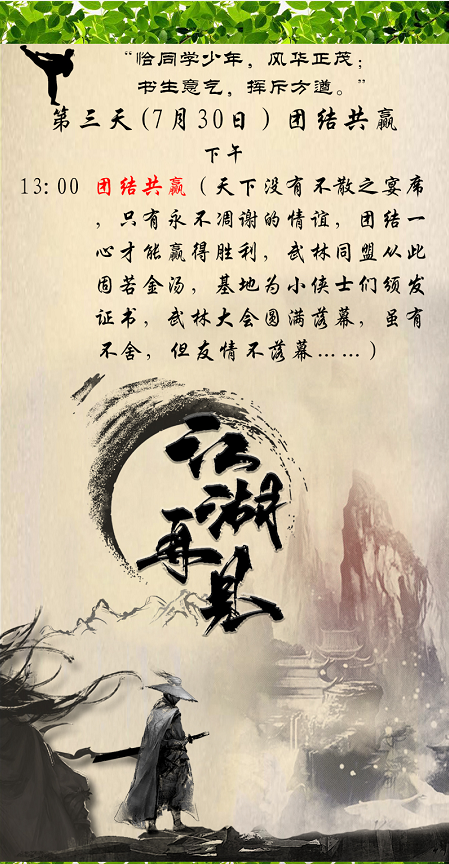 “恰同学少年，风华正茂；
书生意气，挥斥方遒。”
第三天(7月30日）团结共赢
下午
13:00 团结共赢（天下没有不散之宴席
，只有永不凋谢的情谊，团结一
心才能赢得胜利，武林同盟从此
固若金汤，基地为小侠士们颁发
证书，武林大会圆满落幕，虽有
不舍，但友情不落幕……）
江湖
再见